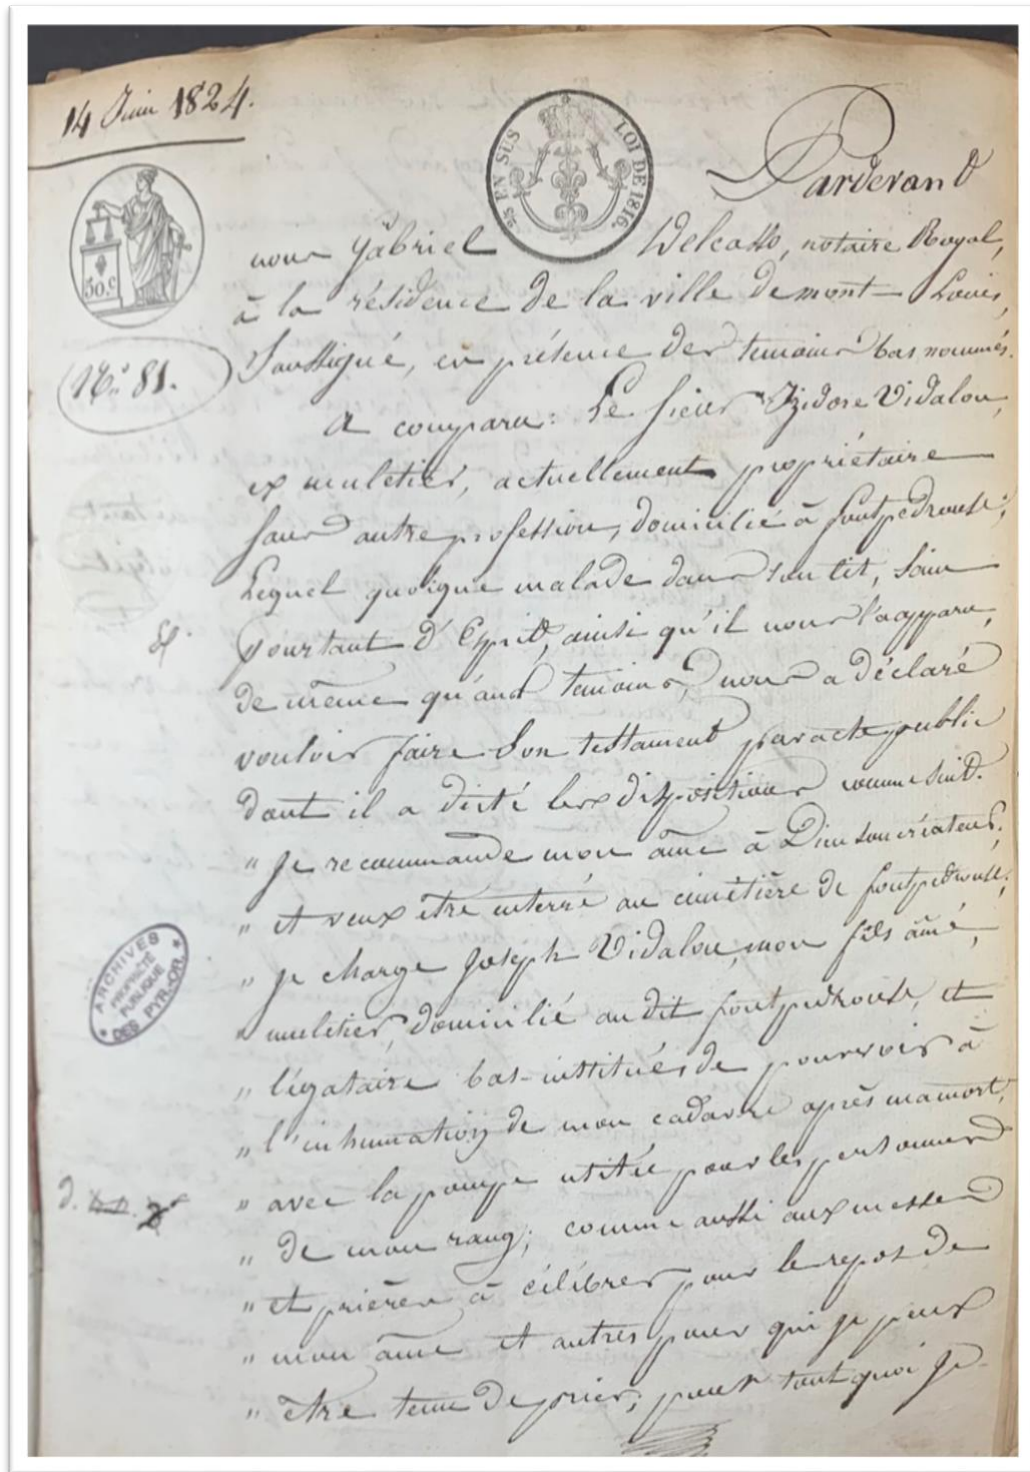 14 Juin 1824.
2/S EN SUS
LOI DE 1816.
50.C
N.° 81.
Pardevant
nous Gabriel Delcasso, notaire Royal,
à la résidence de la ville de mont-Louis,
Soussigné, en présence des temoins bas nommés.
a comparu: Le sieur Izidore Vidalou,
ex muletier, actuellement propriétaire
sans autre profession, domicilié à fontpedrouse;
Lequel quoique malade dans son lit, sain
pourtant d'Esprit, ainsi qu'il nous l'a apparu,
de même qu'aud temoins, nous a déclaré
vouloir faire Son testament par acte public
dont il a dicté les dispositions comme suit.
" Je recommande mon âme à Dieu son créateur,
" et veux être enterré au cimétière de fontpedrouse;
" je charge Joseph Vidalou, mon fils âiné,
" muletier, domicilié au dit fontpedrouse, et
" légataire bas-institué, de pourvoir à
" l'inhumation de mon cadavre après ma mort,
" avec la pompe usitée pour les personnes
" de mon rang; comme aussi aux messes
" et prières à célébrer pour le repos de
" mon âme et autres pour qui je peux
" être tenu de prier; pour tout quoi je
ARCHIVES
PROPRIÉTÉ
PUBLIQUE
DES PYR.-OR.